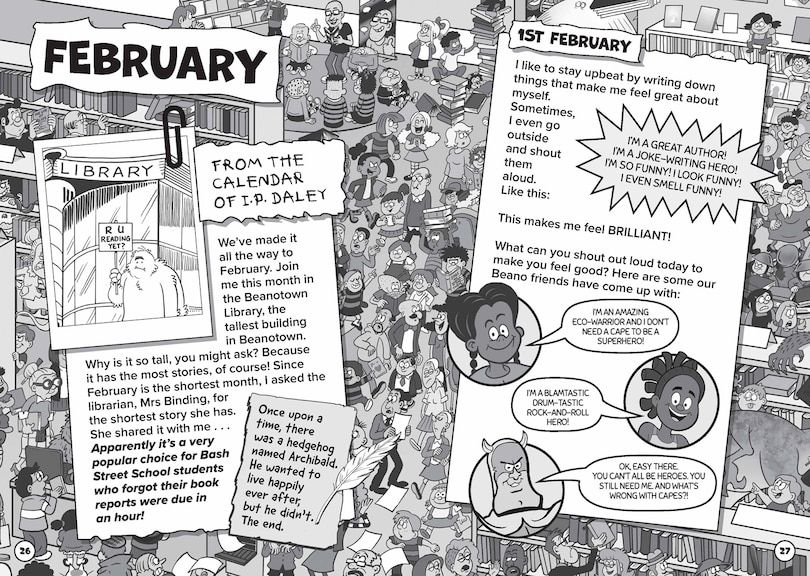 FEBRUARY
LIBRARY
R U
READING
YET?
FROM THE
CALENDAR
OF I.P. DALEY
We've made it
all the way to
February. Join
me this month in
the Beanotown
Library, the
tallest building
in Beanotown.
Why is it so tall, you might ask? Because
it has the most stories, of course! Since
February is the shortest month, I asked the
librarian, Mrs Binding, for
the shortest story she has.
She shared it with me . . .
Apparently it's a very
popular choice for Bash
Street School students
who forgot their book
reports were due in
an hour!
Once upon a
time, there
was a hedgehog
named Archibald.
He wanted to
live happily
ever after,
but he didn't.
The end.
26
1ST FEBRUARY
I like to stay upbeat by writing down
things that make me feel great about
myself.
Sometimes,
I even go
outside
and shout
them
aloud.
Like this:
I'M A GREAT AUTHOR!
I'M A JOKE-WRITING HERO!
I'M SO FUNNY! I LOOK FUNNY!
I EVEN SMELL FUNNY!
This makes me feel BRILLIANT!
What can you shout out loud today to
make you feel good? Here are some our
Beano friends have come up with:
I'M AN AMAZING
ECO-WARRIOR AND I DON'T
NEED A CAPE TO BE A
SUPERHERO!
I'M A BLAMTASTIC
DRUM-TASTIC
ROCK-AND-ROLL
HERO!
OK, EASY THERE.
YOU CAN'T ALL BE HEROES. YOU
STILL NEED ME. AND WHAT'S
WRONG WITH CAPES?!
27